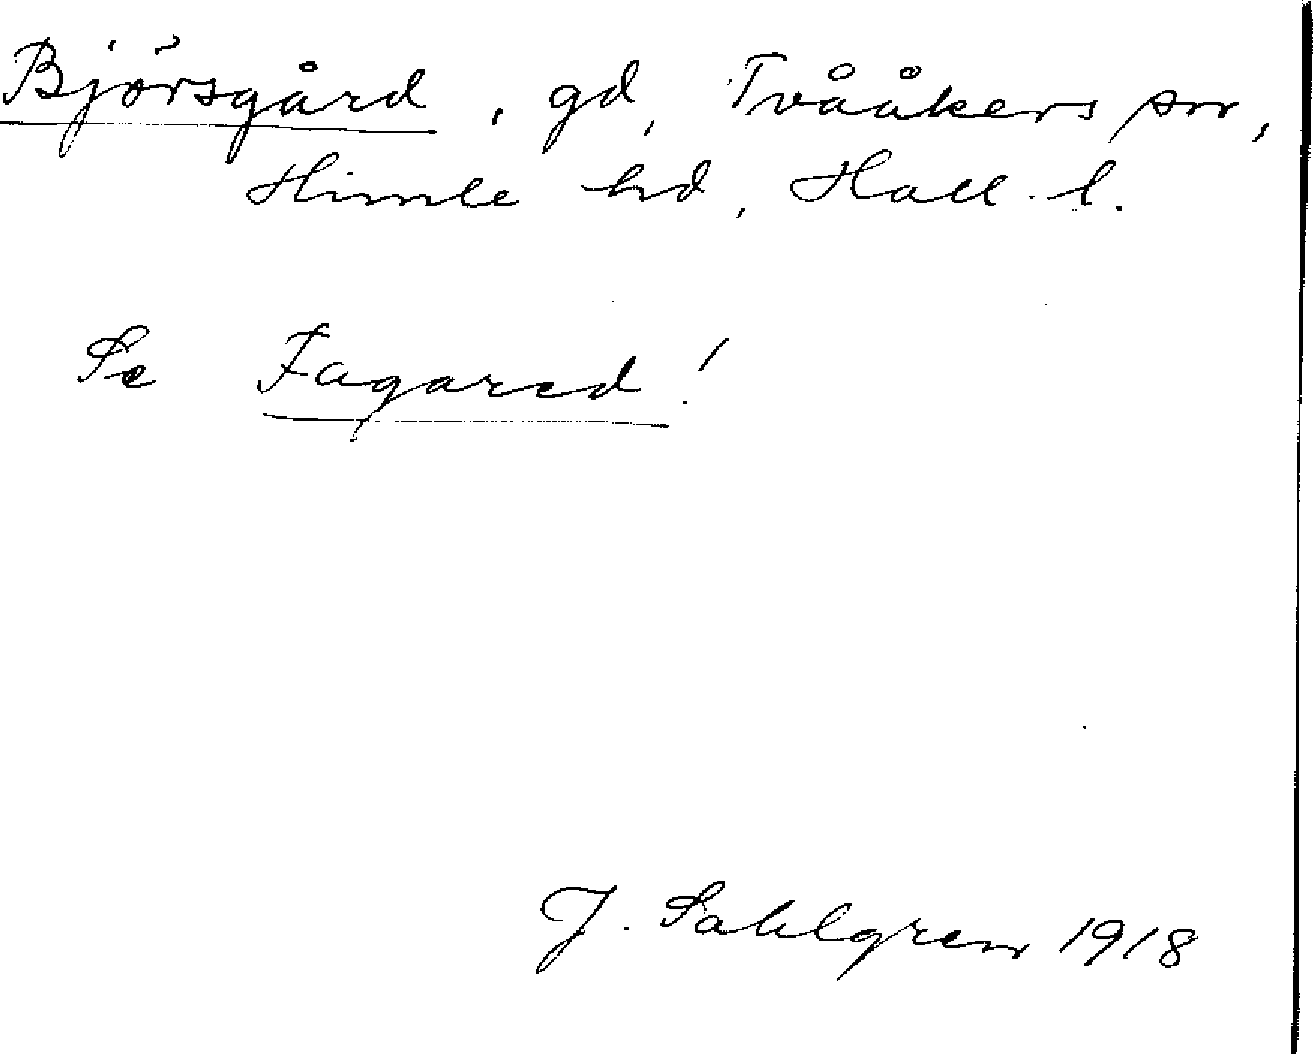 Björsgård, gd, Tvååkers sn,
Himle hd, Hall. l.
Se Fagared!
J. Sahlgren 1918